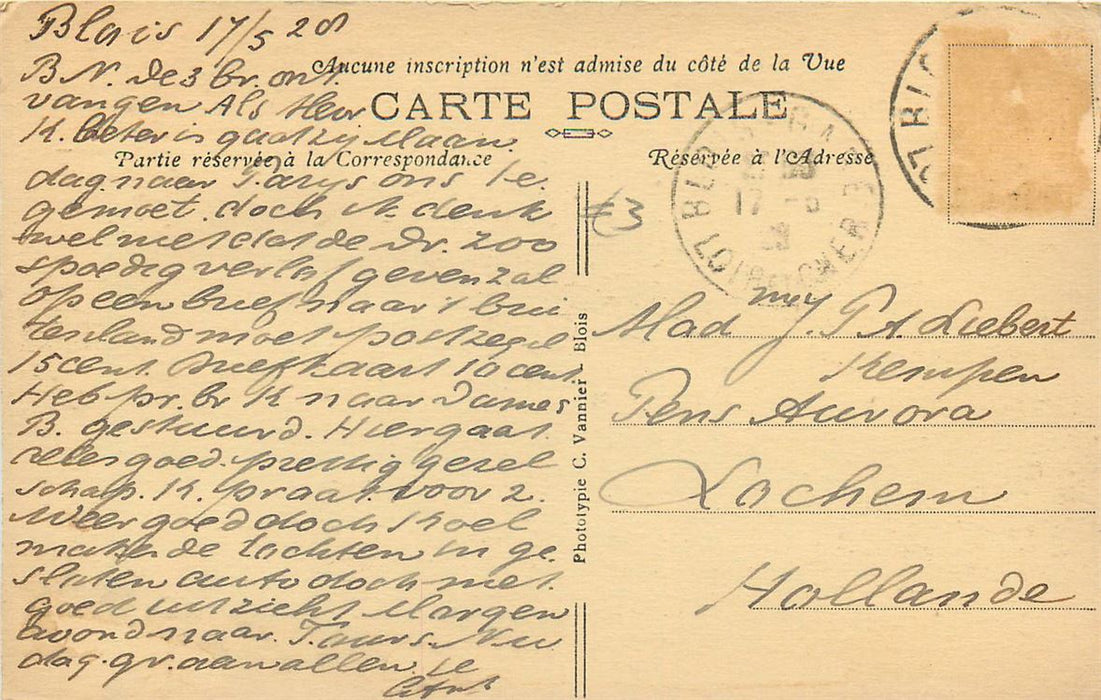 Blois 17/5 28
B N. de 3 br. ont
vangen Als Heer
K. beter is gaat zij Maan
dag naar Parys ons te
gemoet. doch ik denk
wel niet dat de Dr. zoo
spoedig verlof geven zal
op een brief naar 't bui
tenland moet postzegel
15 cent. briefkaart 10 cent.
Heb pr. br K naar Dames
B. gestuurd. Hier gaat
alles goed. prettig gezel
schap. K. praat voor 2.
Weer goed doch koel
maken de tochten in ge
sloten auto doch met
goed uitzicht Morgen
avond naar Tours. Nu
dag. gr. aan allen. je
Aucune inscription n'est admise du côté de la Vue
CARTE POSTALE
Partie réservée à la Correspondance
Réservée à l'Adresse
£3
BLOIS
17-5
LOIR-ET-CHER
BLOIS
Photolypie C. Vannier - Blois
Mad J. P. A. Liebert
Kempen
Pens Aurora
Lochem
Hollande